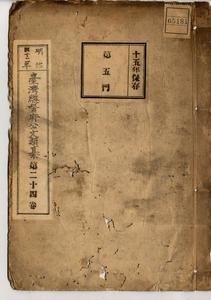 明治
臺灣總督府公文類纂 第二十四卷
十五年保存
第五門